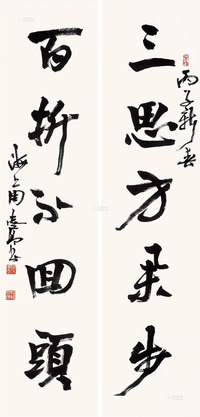 三思方举步
丙子新春
百折不回頭
海上周慧珺